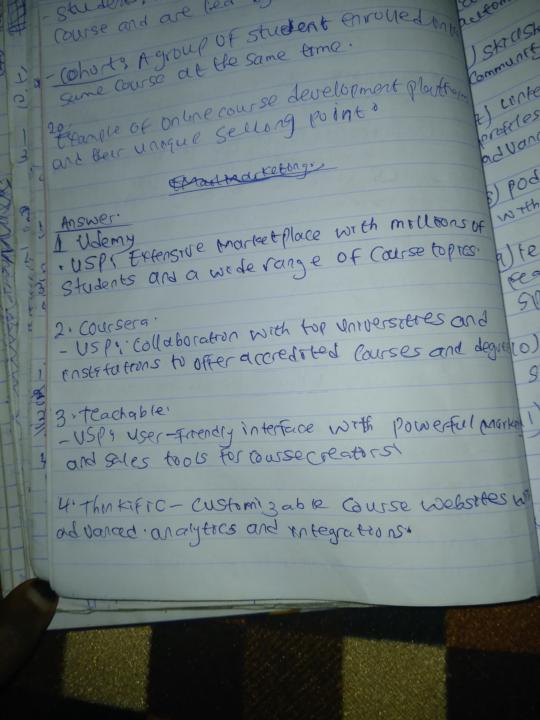 - Stude
course and are led
- Cohort: A group of student enrolled in
same course at the same time.
20.
Example of online course development platform
and their unique selling point.
Email Marketing.
Answer.
1 Udemy
- USP: Extensive marketplace with millions of
students and a wide range of course topics.
2. Coursera.
- USP: Collaboration with top universities and
institutions to offer accredited courses and degre
3. Teachable.
- USP: User-friendly interface with powerful market
and sales tools for course creators
4. Thinkific - Customizable course websites w
advanced analytics and integrations.
) SkillSh
Communit
) conte
profiles
advanc
) pod
with
) te
fea
10)